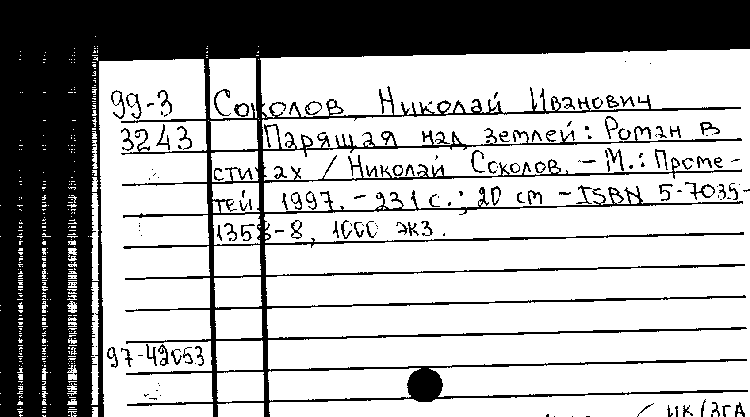 99-3 Соколов Николай Иванович
3243 Парящая над землей: Роман в
стихах / Николай Соколов. - М.: Проме-
тей. 1997. - 231 с.; 20 cm - ISBN 5-7035-
1358-8, 1000 экз.
97-42053